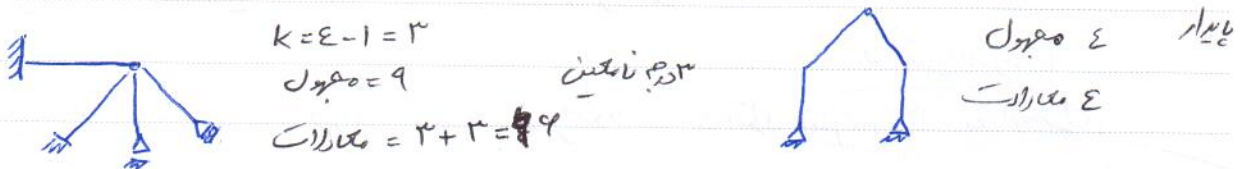 K = ٤ - ١ = ٣
مجهول = ٩
معادلات = ٣ + ٣ = ٦
٣ درجه نامعین
٤ مجهول
٤ معادلات
پایدار